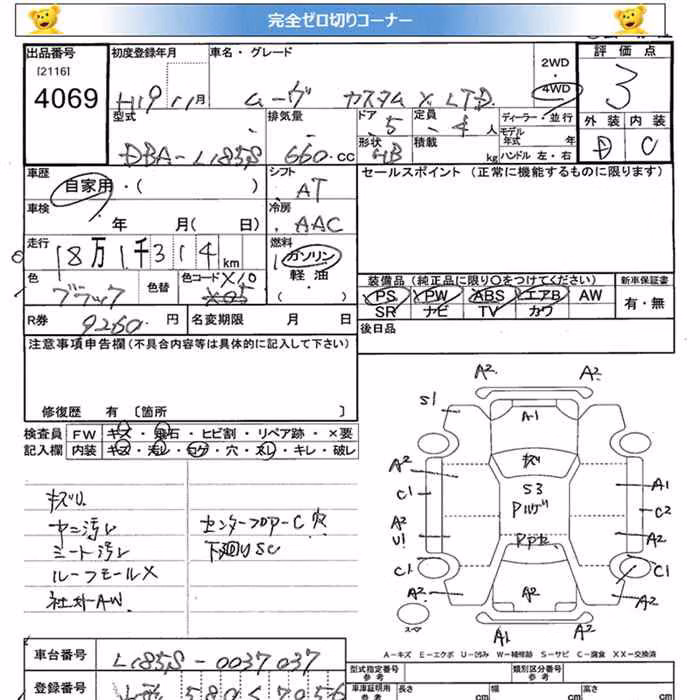 完全ゼロ切りコーナー
出品番号 初度登録年月 車名・グレード 2WD 評価点
[2116] 4WD 3
4069 H19 11月 ムーヴ カスタム X LTD.
型式 排気量 ドア 定員 ディーラー・並行 外装 内装
5 4人 モデル年式 年
DBA-L185S 660.cc 形状 HB 積載 kg ハンドル 左・右 D C
車歴 シフト セールスポイント (正常に機能するものに限ります)
自家用・( ) AT
車検 冷房
年 月(日) AAC
走行 燃料
18万1千314km ガソリン
色 色替 色コード X10 軽油 装備品 (純正品に限り○をつけてください) 新車保証書
ブラック ( ) PS PW ABS エアB AW 有・無
R券 9260.円 名変期限 月 日 SR ナビ TV カワ
注意事項申告欄(不具合内容等は具体的に記入して下さい) 後日品
修復歴 有 [箇所 ]
検査員 FW キズ・飛石・ヒビ割・リペア跡・×要
記入欄 内装 キズ・汚レ・コゲ・穴・スレ・キレ・破レ
キズU
ヤニ汚レ センターフロアーC穴
シート汚レ 下廻りSC
ルーフモールX
社外AW.
A2 A2
S1 A1
キズ
A2 S3 A1
C1 C2
A2 A2
U1 Rpセ
C1 C1
A2 A2 A2
スペア A1 A2
A-キズ E-エクボ U-凹み W-補修跡 S-サビ C-腐食 XX-交換済
車台番号 L185S-0037037 型式指定番号 参考 類別区分番号 参考
登録番号 車庫証明用 参考 長さ cm 幅 cm 高さ cm